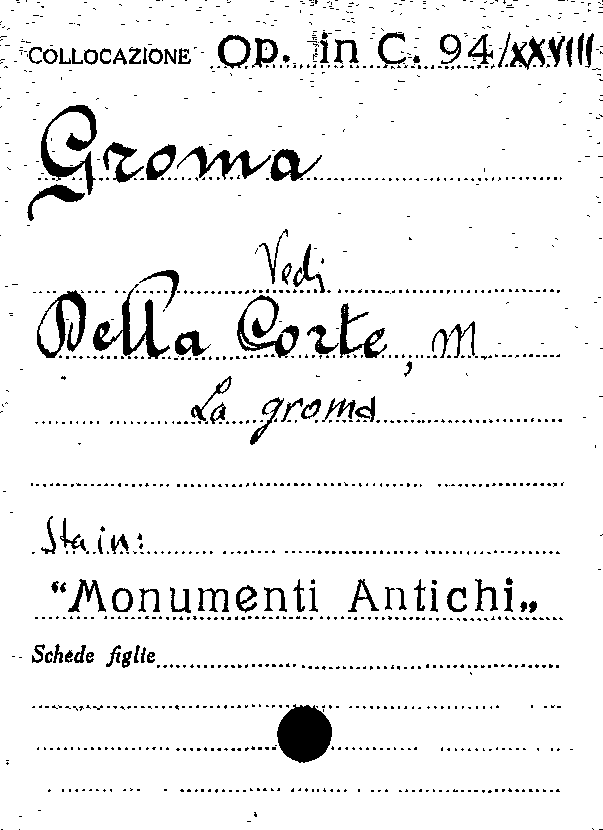 COLLOCAZIONE Op. in C. 94/XXVIII
Groma
Vedi
Della Corte, M
La groma
Sta in:
"Monumenti Antichi„
Schede figlie